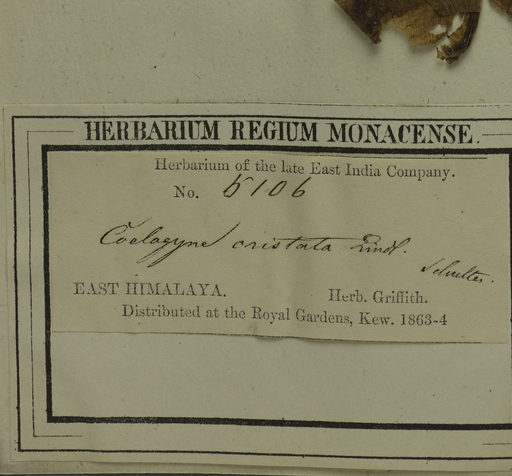 HERBARIUM REGIUM MONACENSE.
Herbarium of the late East India Company.
No. 5106
Coelogyne cristata Lindl.
Schultes.
EAST HIMALAYA. Herb. Griffith.
Distributed at the Royal Gardens, Kew. 1863-4